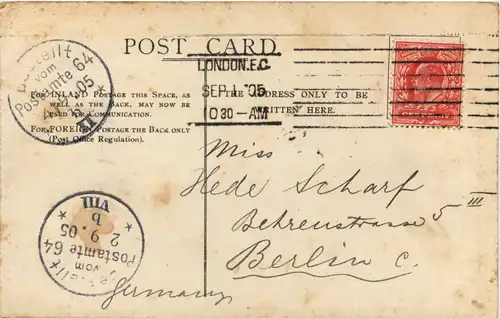 POST CARD
LONDON.E.C.
SEP 1 '05
1030-AM
Bestellt
vom
Postamte 64
FOR INLAND POSTAGE THIS SPACE, AS
WELL AS THE BACK, MAY NOW BE
USED FOR COMMUNICATION.
FOR FOREIGN POSTAGE THE BACK ONLY
(Post Office Regulation).
THE ADDRESS ONLY TO BE
WRITTEN HERE.
Miss
Hede Scharf
Behrenstrasse 5 III
Berlin C.
Germany
VIII
b
2 9.05
vom
Postamte 64